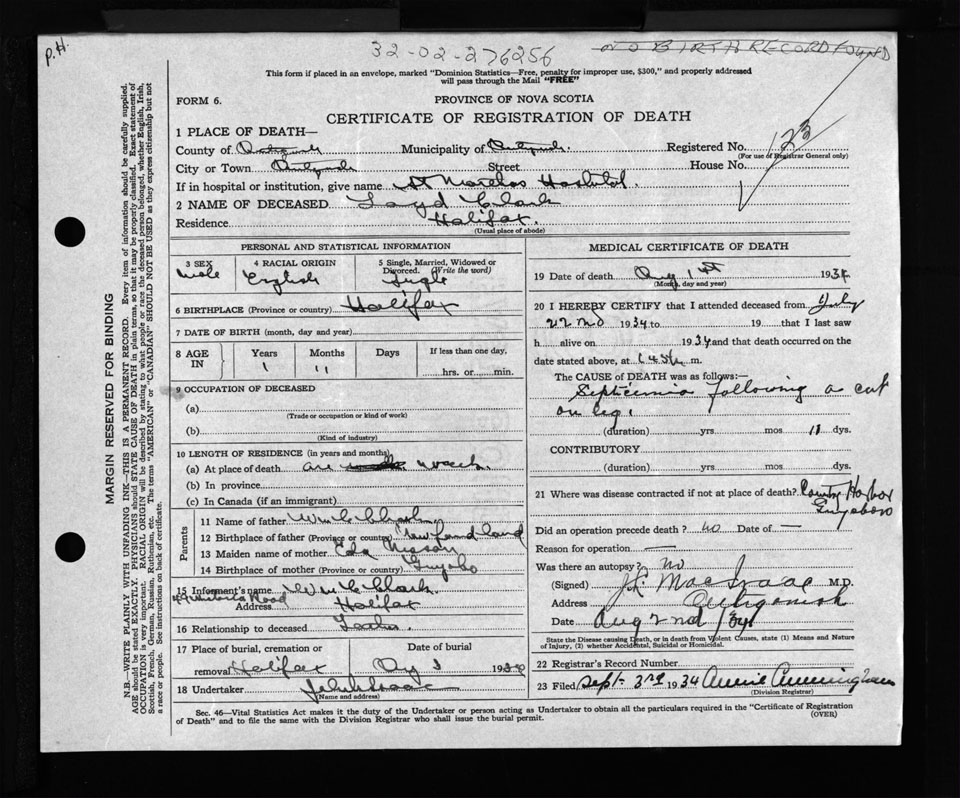 P.H.
32-02-276256
NO BIRTH RECORD FOUND
This form if placed in an envelope, marked "Dominion Statistics—Free, penalty for improper use, $300," and properly addressed
will pass through the Mail "FREE"
FORM 6.
PROVINCE OF NOVA SCOTIA
CERTIFICATE OF REGISTRATION OF DEATH
1 PLACE OF DEATH—
County of Municipality of Registered No. 123
(For use of Registrar General only)
City or Town Street House No.
If in hospital or institution, give name St Marthas Hospital.
2 NAME OF DECEASED Loyd Clark
Residence Halifax.
(Usual place of abode)
PERSONAL AND STATISTICAL INFORMATION
3 SEX 4 RACIAL ORIGIN 5 Single, Married, Widowed or
Divorced. (Write the word)
Male English Single
6 BIRTHPLACE (Province or country) Halifax
7 DATE OF BIRTH (month, day and year)
8 AGE IN Years Months Days If less than one day,
1 11 hrs. or min.
9 OCCUPATION OF DECEASED
(a)
(Trade or occupation or kind of work)
(b)
(Kind of industry)
10 LENGTH OF RESIDENCE (in years and months)
(a) At place of death one week.
(b) In province
(c) In Canada (if an immigrant)
Parents
11 Name of father Wm C Clark
12 Birthplace of father (Province or country) New found land
13 Maiden name of mother Eda
14 Birthplace of mother (Province or country) Guysboro
15 Informent's name Wm C Clark
Address Road Halifax
16 Relationship to deceased Father.
17 Place of burial, cremation or Date of burial
removal Halifax Aug 3 1934
18 Undertaker
(Name and address)
MEDICAL CERTIFICATE OF DEATH
19 Date of death Aug 1st 1934
(Month, day and year)
20 I HEREBY CERTIFY that I attended deceased from July
22nd 1934 to 19 that I last saw
h alive on 1934 and that death occurred on the
date stated above, at m.
The CAUSE of DEATH was as follows:—
Septicemia following a cut
on leg.
(duration) yrs mos 11 dys.
CONTRIBUTORY
(duration) yrs mos dys.
21 Where was disease contracted if not at place of death? Country Harbor
Guysboro
Did an operation precede death? no Date of —
Reason for operation —
Was there an autopsy? no
(Signed) MacIsaac M.D.
Address Antigonish
Date Aug 2nd /34
State the Disease causing Death, or in death from Violent Causes, state (1) Means and Nature
of Injury, (2) whether Accidental, Suicidal or Homicidal.
22 Registrar's Record Number
23 Filed Sept 3rd 1934 Annie Cunningham
(Division Registrar)
Sec. 46—Vital Statistics Act makes it the duty of the Undertaker or person acting as Undertaker to obtain all the particulars required in the "Certificate of Registration
of Death" and to file the same with the Division Registrar who shall issue the burial permit.
(OVER)
MARGIN RESERVED FOR BINDING
N.B.—WRITE PLAINLY WITH UNFADING INK—THIS IS A PERMANENT RECORD. Every item of information should be carefully supplied.
AGE should be stated EXACTLY. PHYSICIANS should STATE CAUSE OF DEATH in plain terms, so that it may be properly classified. Exact statement of
OCCUPATION is very important. RACIAL ORIGIN will be described by stating to what people or race the deceased person belonged, whether English, Irish,
Scottish, French, German, Russian, Ruthenian, etc. The terms "AMERICAN" or "CANADIAN" SHOULD NOT BE USED as they express citizenship but not
a race or people. See instructions on back of certificate.